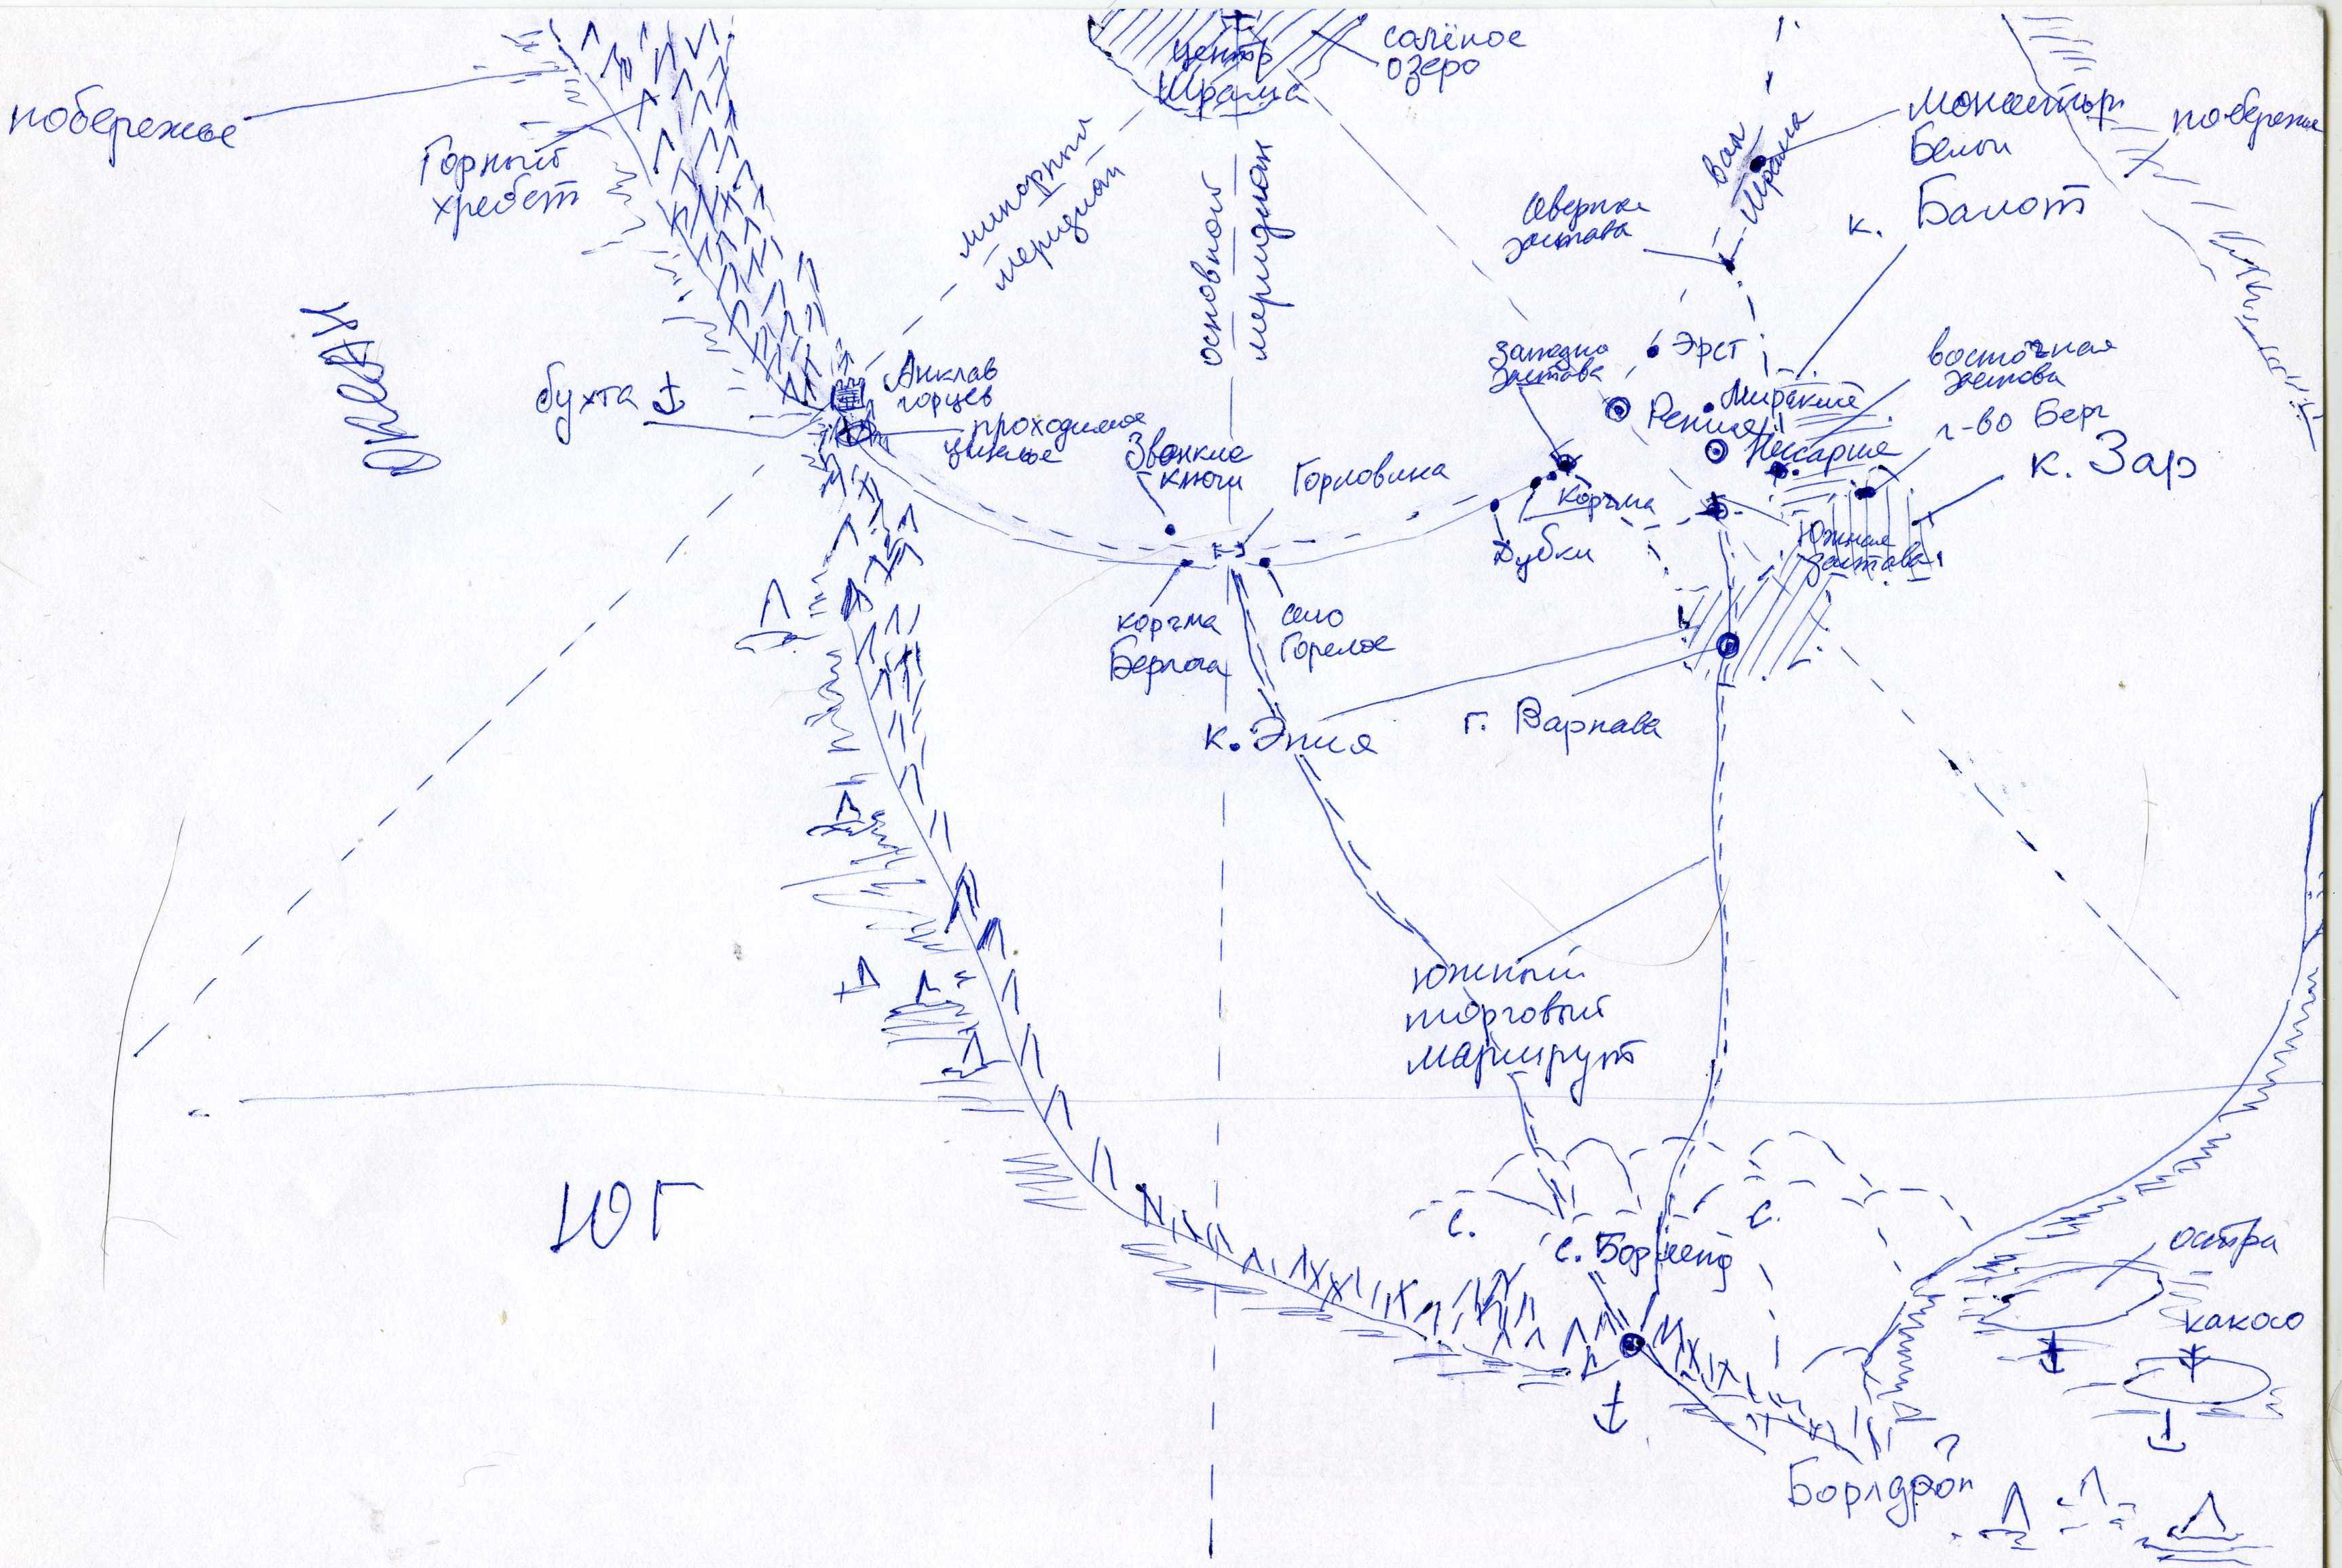 солёное
озеро
центр
Шрама
побережье
Горный
хребет
минорный
меридиан
основной
меридиан
Вал
Шрама
монастырь
Белы
побережье
к. Балот
северная
застава
Океан
бухта
Анклав
горцев
проходимое
ущелье
Звонкие
ключи
Горловина
западная
застава
Эрст
восточная
застава
г-во Берг
к. Зар
Корчма
Дубки
Южная
застава
корчма
село
Горелое
к. Эния
г. Варнава
южный
торговый
маршрут
ЮГ
с.
с.
с.
остра
какао
Борлдроп